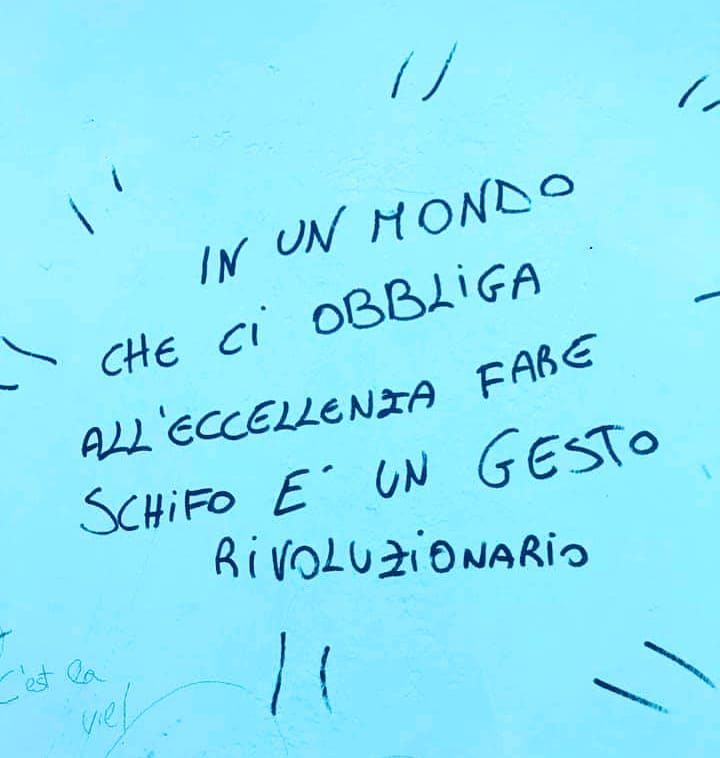 IN UN MONDO
CHE Ci OBBLiGA
ALL'ECCELLENZA FARE
SCHiFO E' UN GESTO
RiVOLUZiONARiO
C'est la
vie!